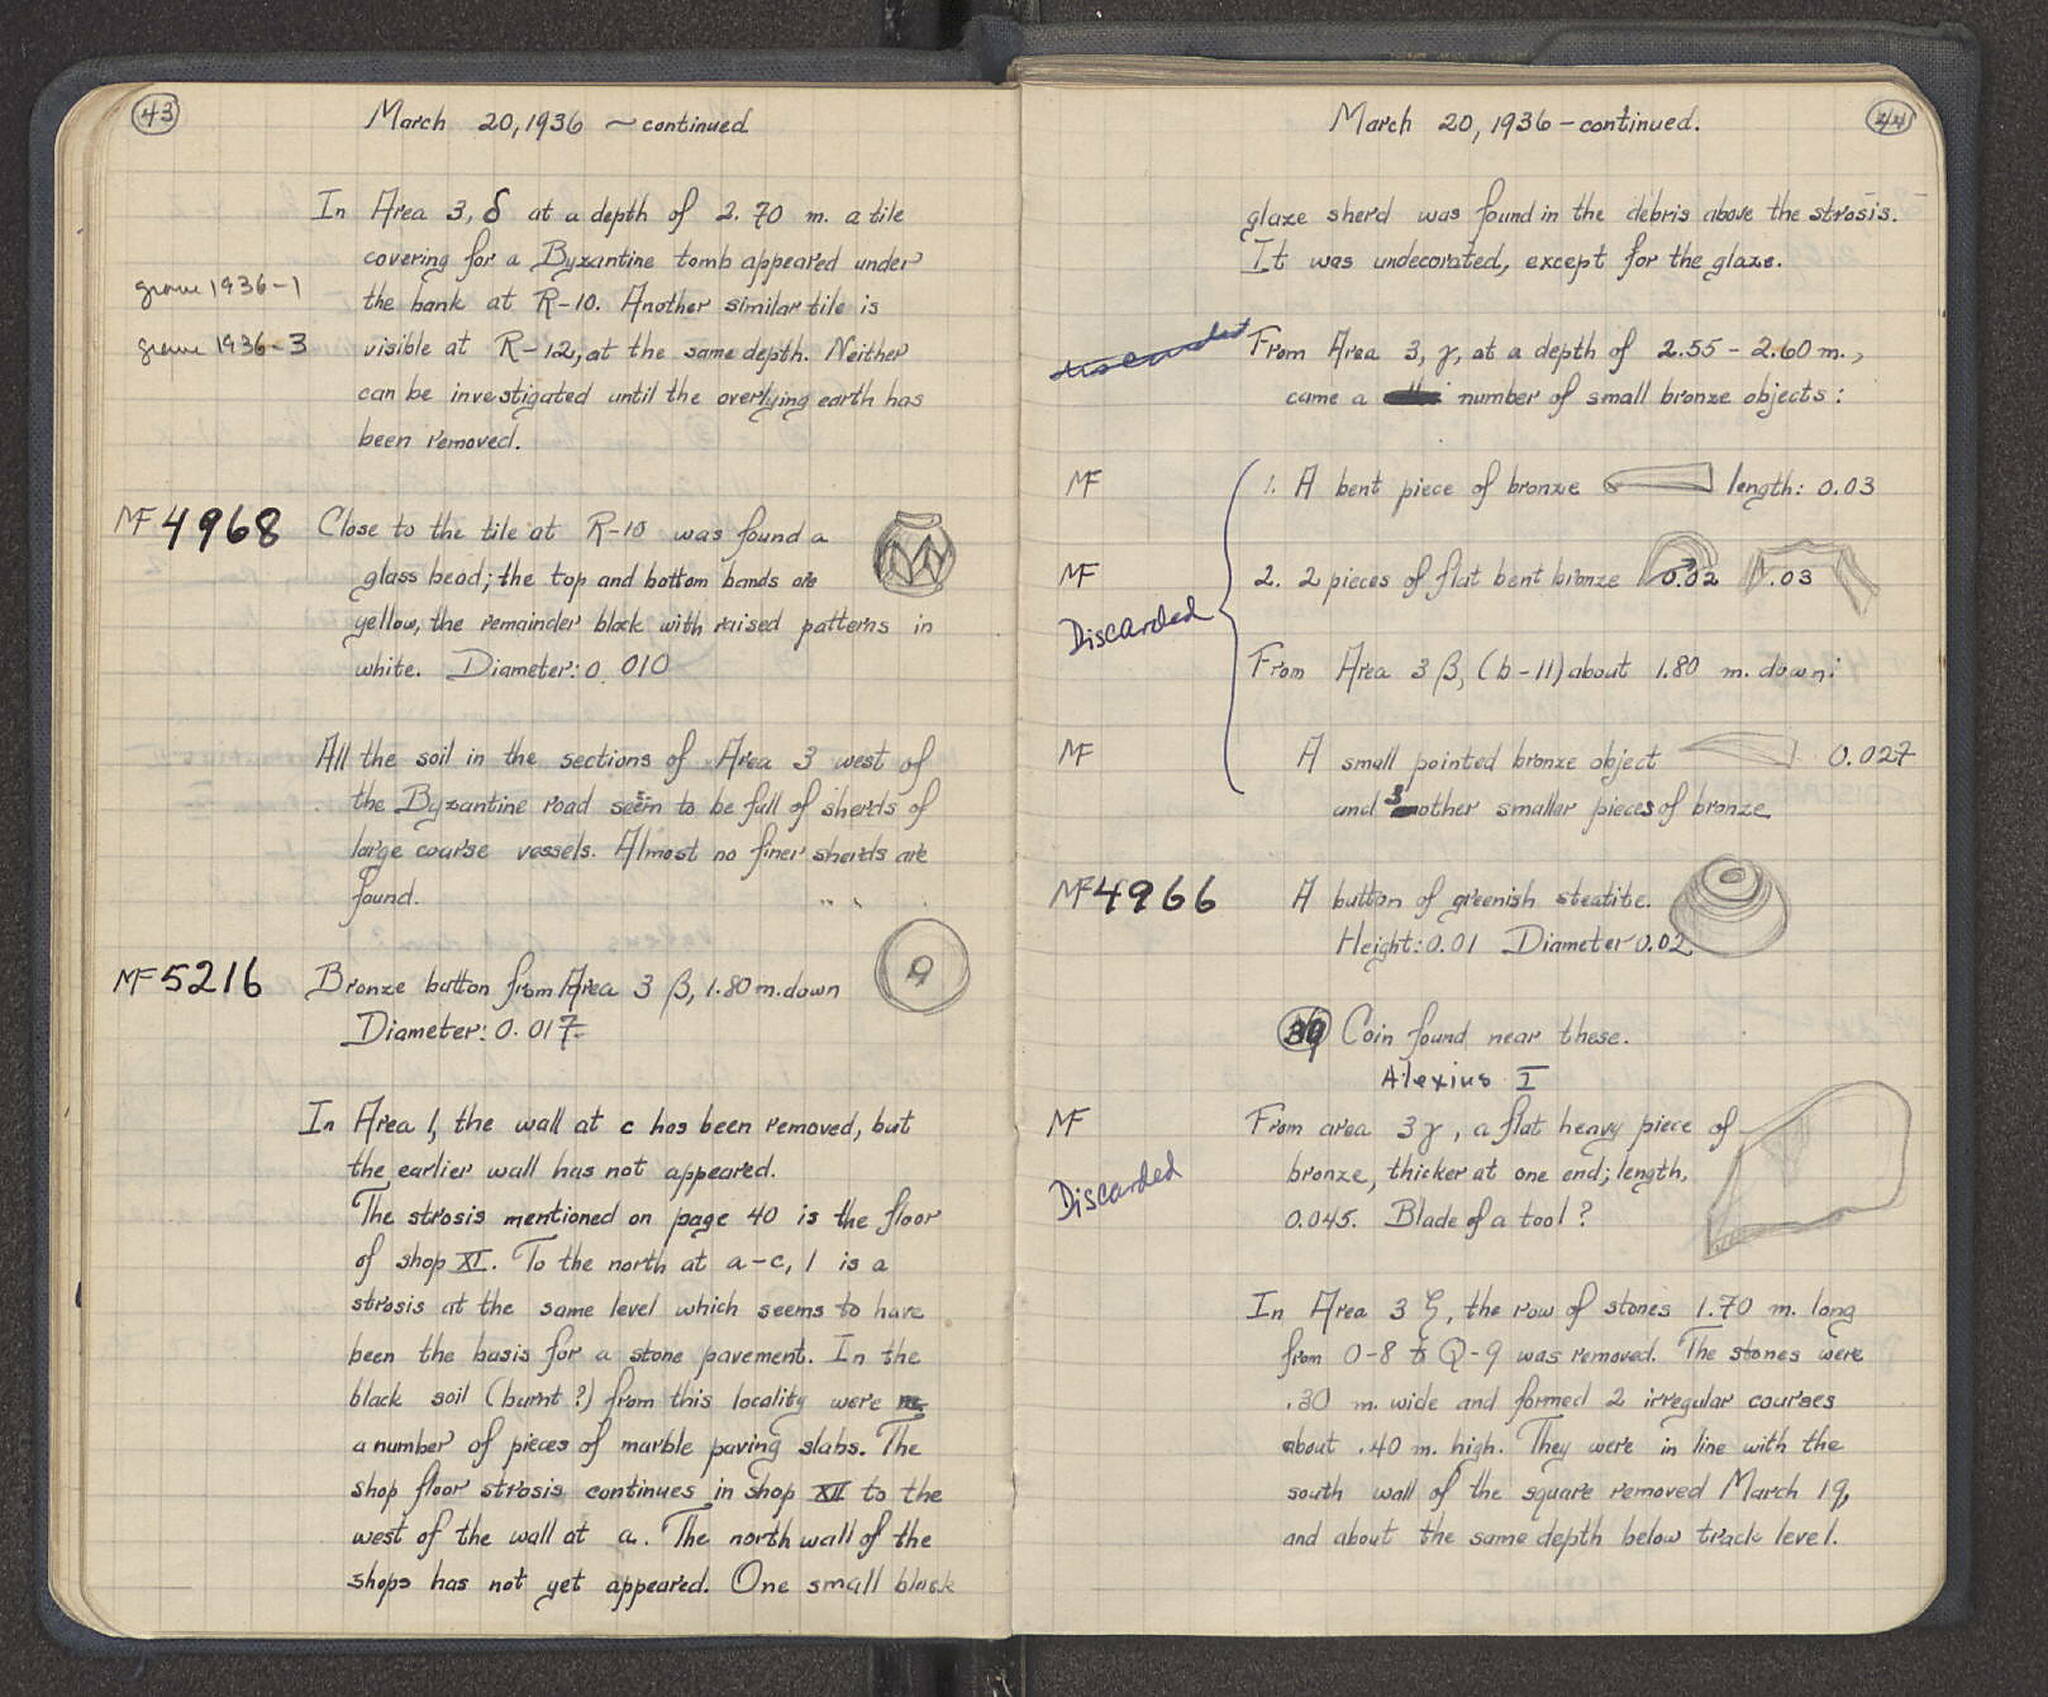 43
March 20, 1936 ~ continued
In Area 3, δ at a depth of 2.70 m. a tile
covering for a Byzantine tomb appeared under
grave 1936-1
the bank at R-10. Another similar tile is
grave 1936-3
visible at R-12, at the same depth. Neither
can be investigated until the overlying earth has
been removed.
MF 4968 Close to the tile at R-10 was found a
glass bead; the top and bottom bands are
yellow, the remainder black with raised patterns in
white. Diameter: 0.010
All the soil in the sections of Area 3 west of
the Byzantine road seem to be full of sherds of
large coarse vessels. Almost no finer sherds are
found.
MF 5216 Bronze button from Area 3 β, 1.80 m. down
Diameter: 0.017
In Area 1, the wall at c has been removed, but
the earlier wall has not appeared.
The strosis mentioned on page 40 is the floor
of shop XI. To the north at a-c, 1 is a
strosis at the same level which seems to have
been the basis for a stone pavement. In the
black soil (burnt?) from this locality were
a number of pieces of marble paving slabs. The
shop floor strosis continues in shop XII to the
west of the wall at a. The north wall of the
shops has not yet appeared. One small black
44
March 20, 1936 - continued.
glaze sherd was found in the debris above the strosis.
It was undecorated, except for the glaze.
discarded From Area 3, γ, at a depth of 2.55 - 2.60 m.,
came a number of small bronze objects:
MF 1. A bent piece of bronze length: 0.03
MF 2. 2 pieces of flat bent bronze 0.02 .03
Discarded
From Area 3 β, (b-11) about 1.80 m. down:
MF A small pointed bronze object 0.027
and 3 other smaller pieces of bronze
MF 4966 A button of greenish steatite.
Height: 0.01 Diameter 0.02
Coin found near these.
Alexius I
MF From area 3 γ, a flat heavy piece of
bronze, thicker at one end; length,
Discarded
0.045. Blade of a tool?
In Area 3 ζ, the row of stones 1.70 m. long
from O-8 to Q-9 was removed. The stones were
.30 m. wide and formed 2 irregular courses
about .40 m. high. They were in line with the
south wall of the square removed March 19,
and about the same depth below track level.